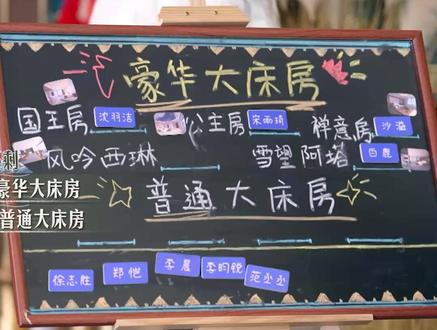 豪华大床房
国王房 沈羽洁 公主房 宋雨琦 禅意房 沙溢
风吟西琳 雪望阿塔 白鹿
豪华大床房
普通大床房
普通大床房
徐志胜 郑恺 李晨 李昀锐 范丞丞